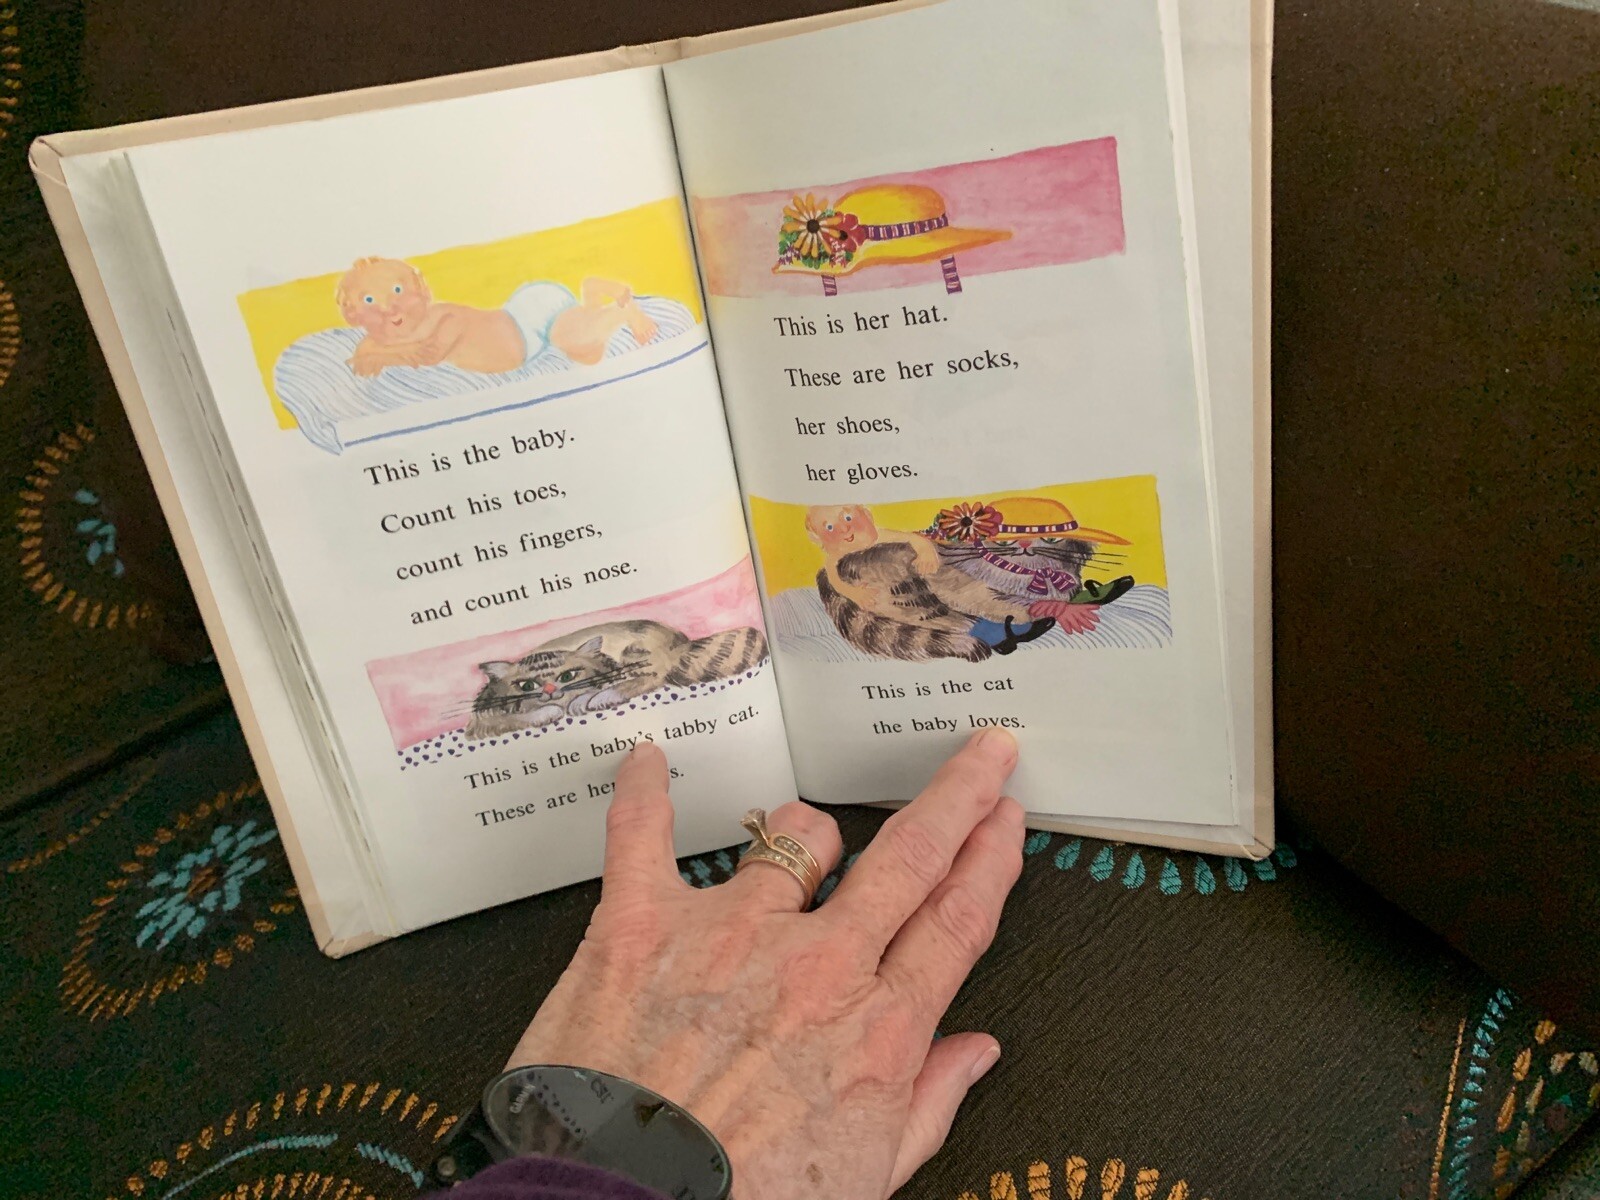 This is the baby.
Count his toes,
count his fingers,
and count his nose.
This is the baby's tabby cat.
These are her
This is her hat.
These are her socks,
her shoes,
her gloves.
This is the cat
the baby loves.
GARMIN